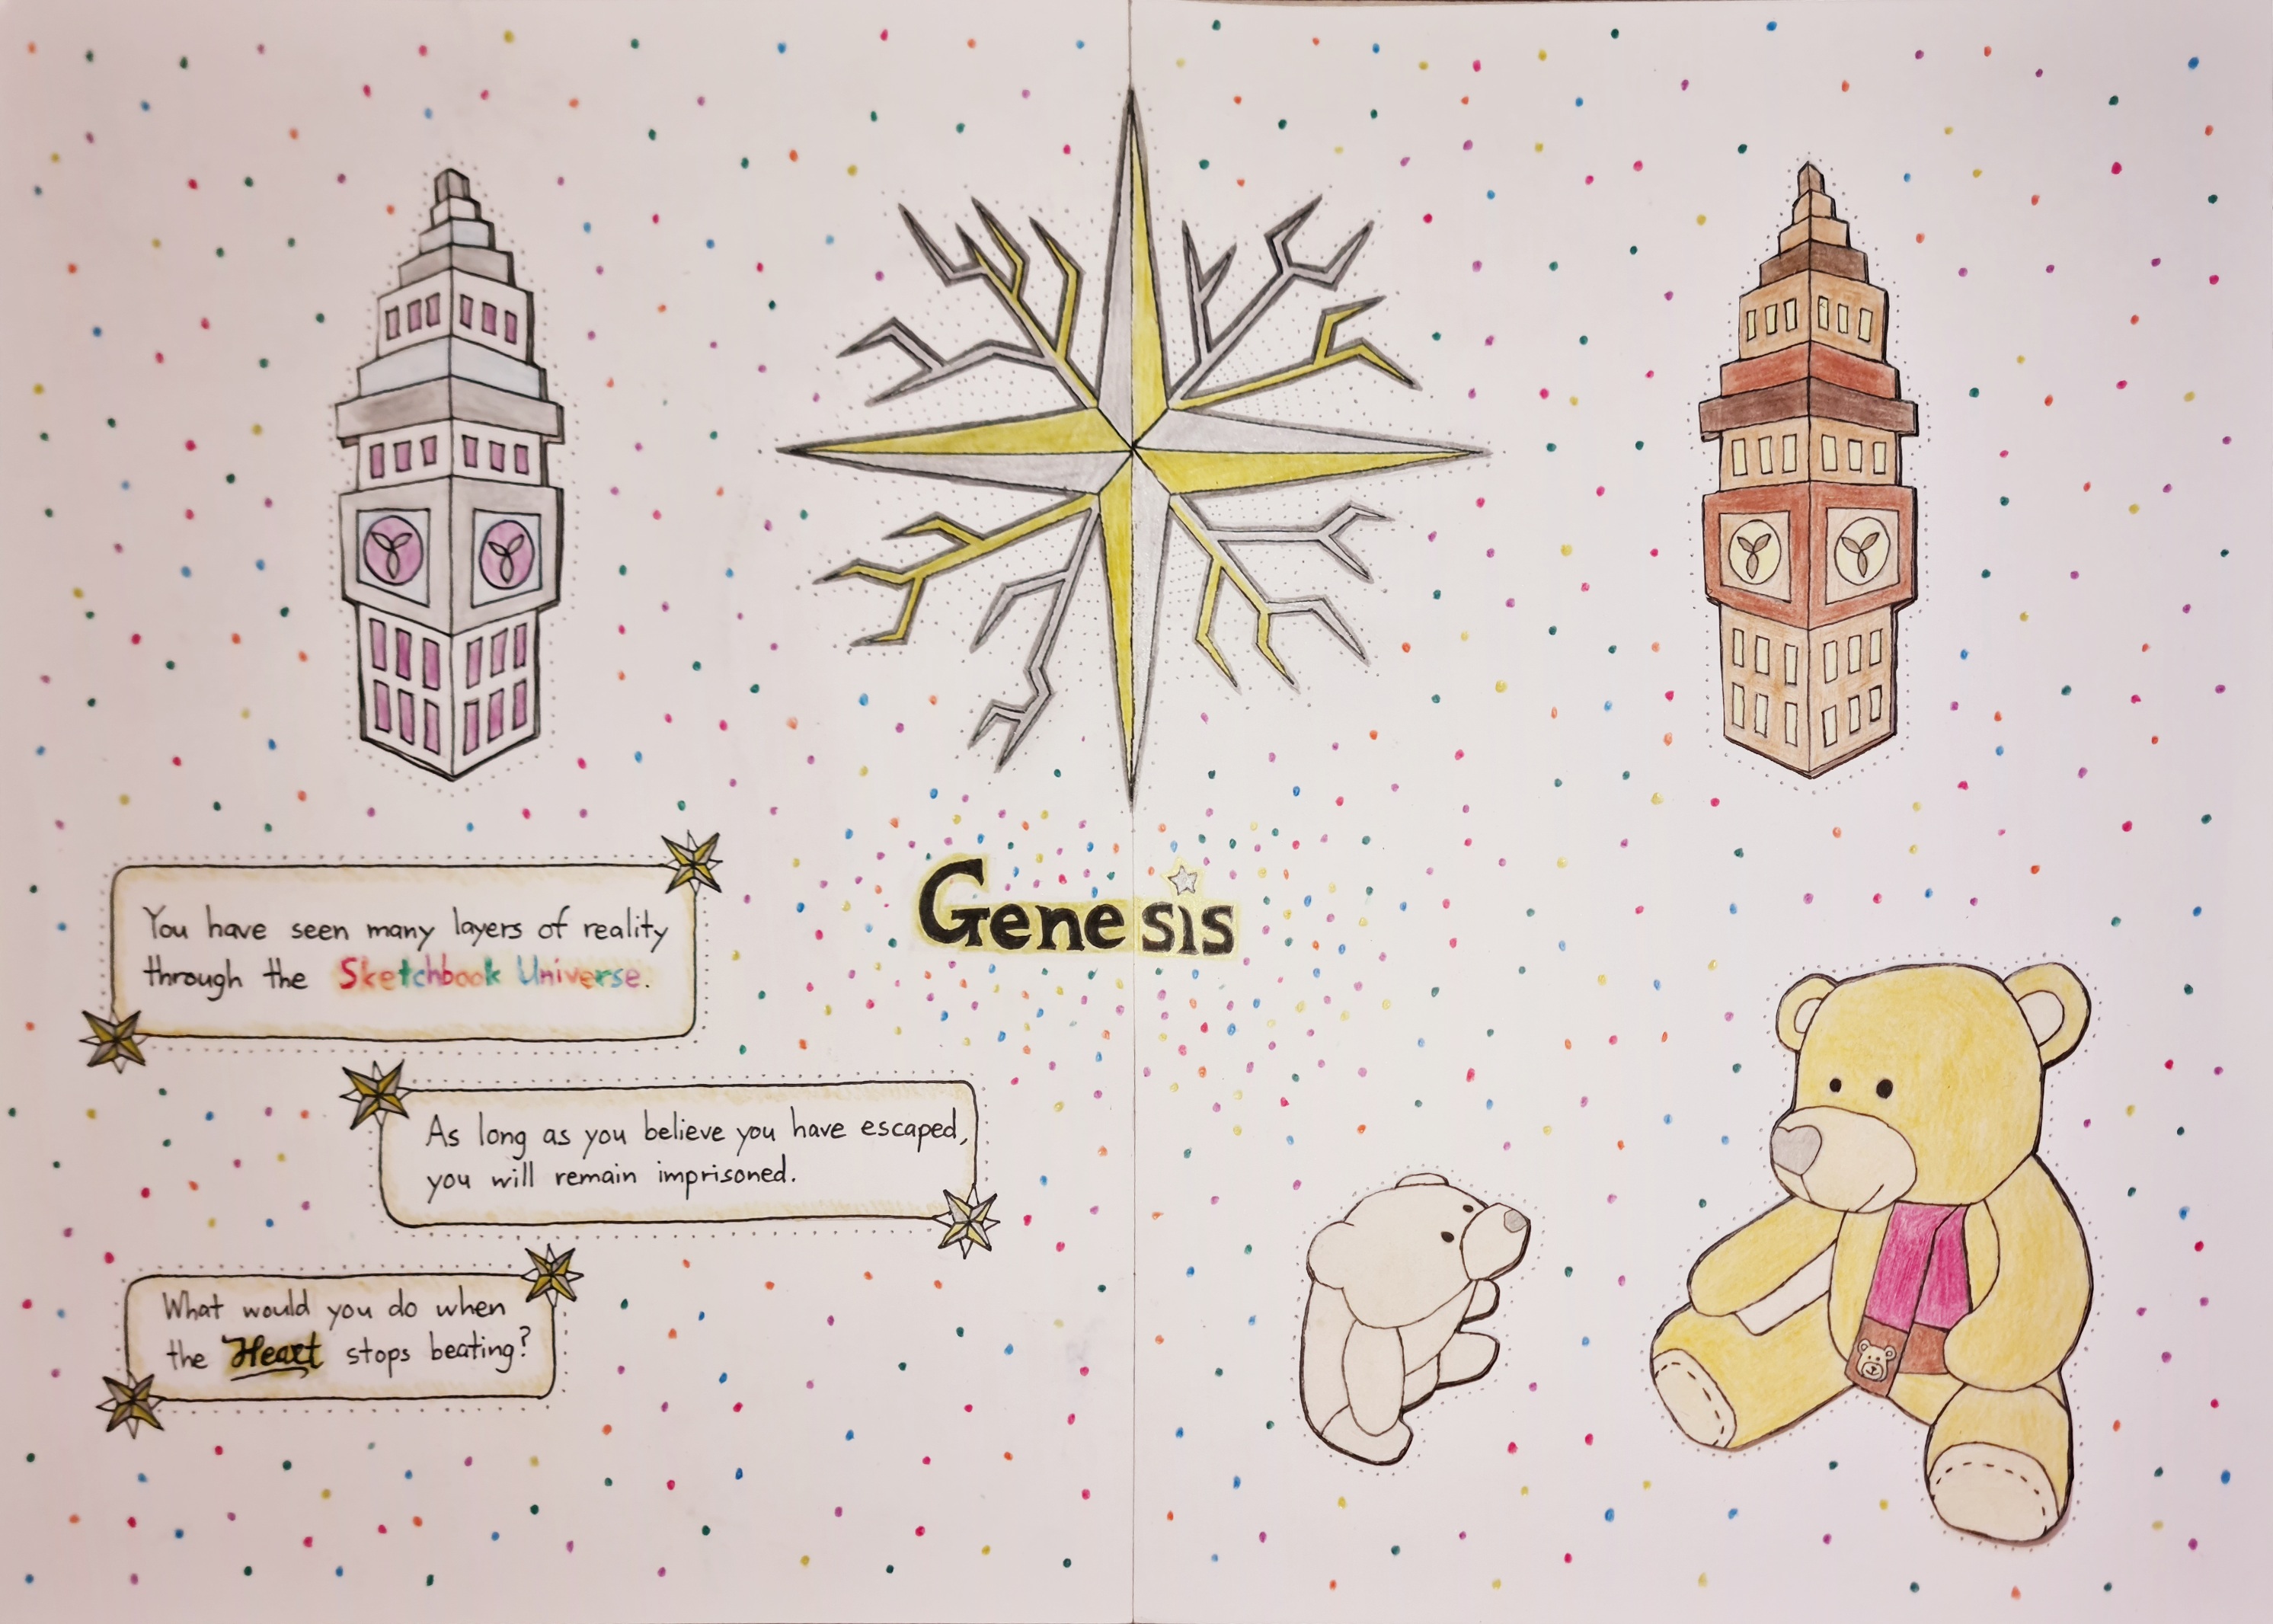 Genesis
You have seen many layers of reality
through the Sketchbook Universe.
As long as you believe you have escaped,
you will remain imprisoned.
What would you do when
the Heart stops beating?